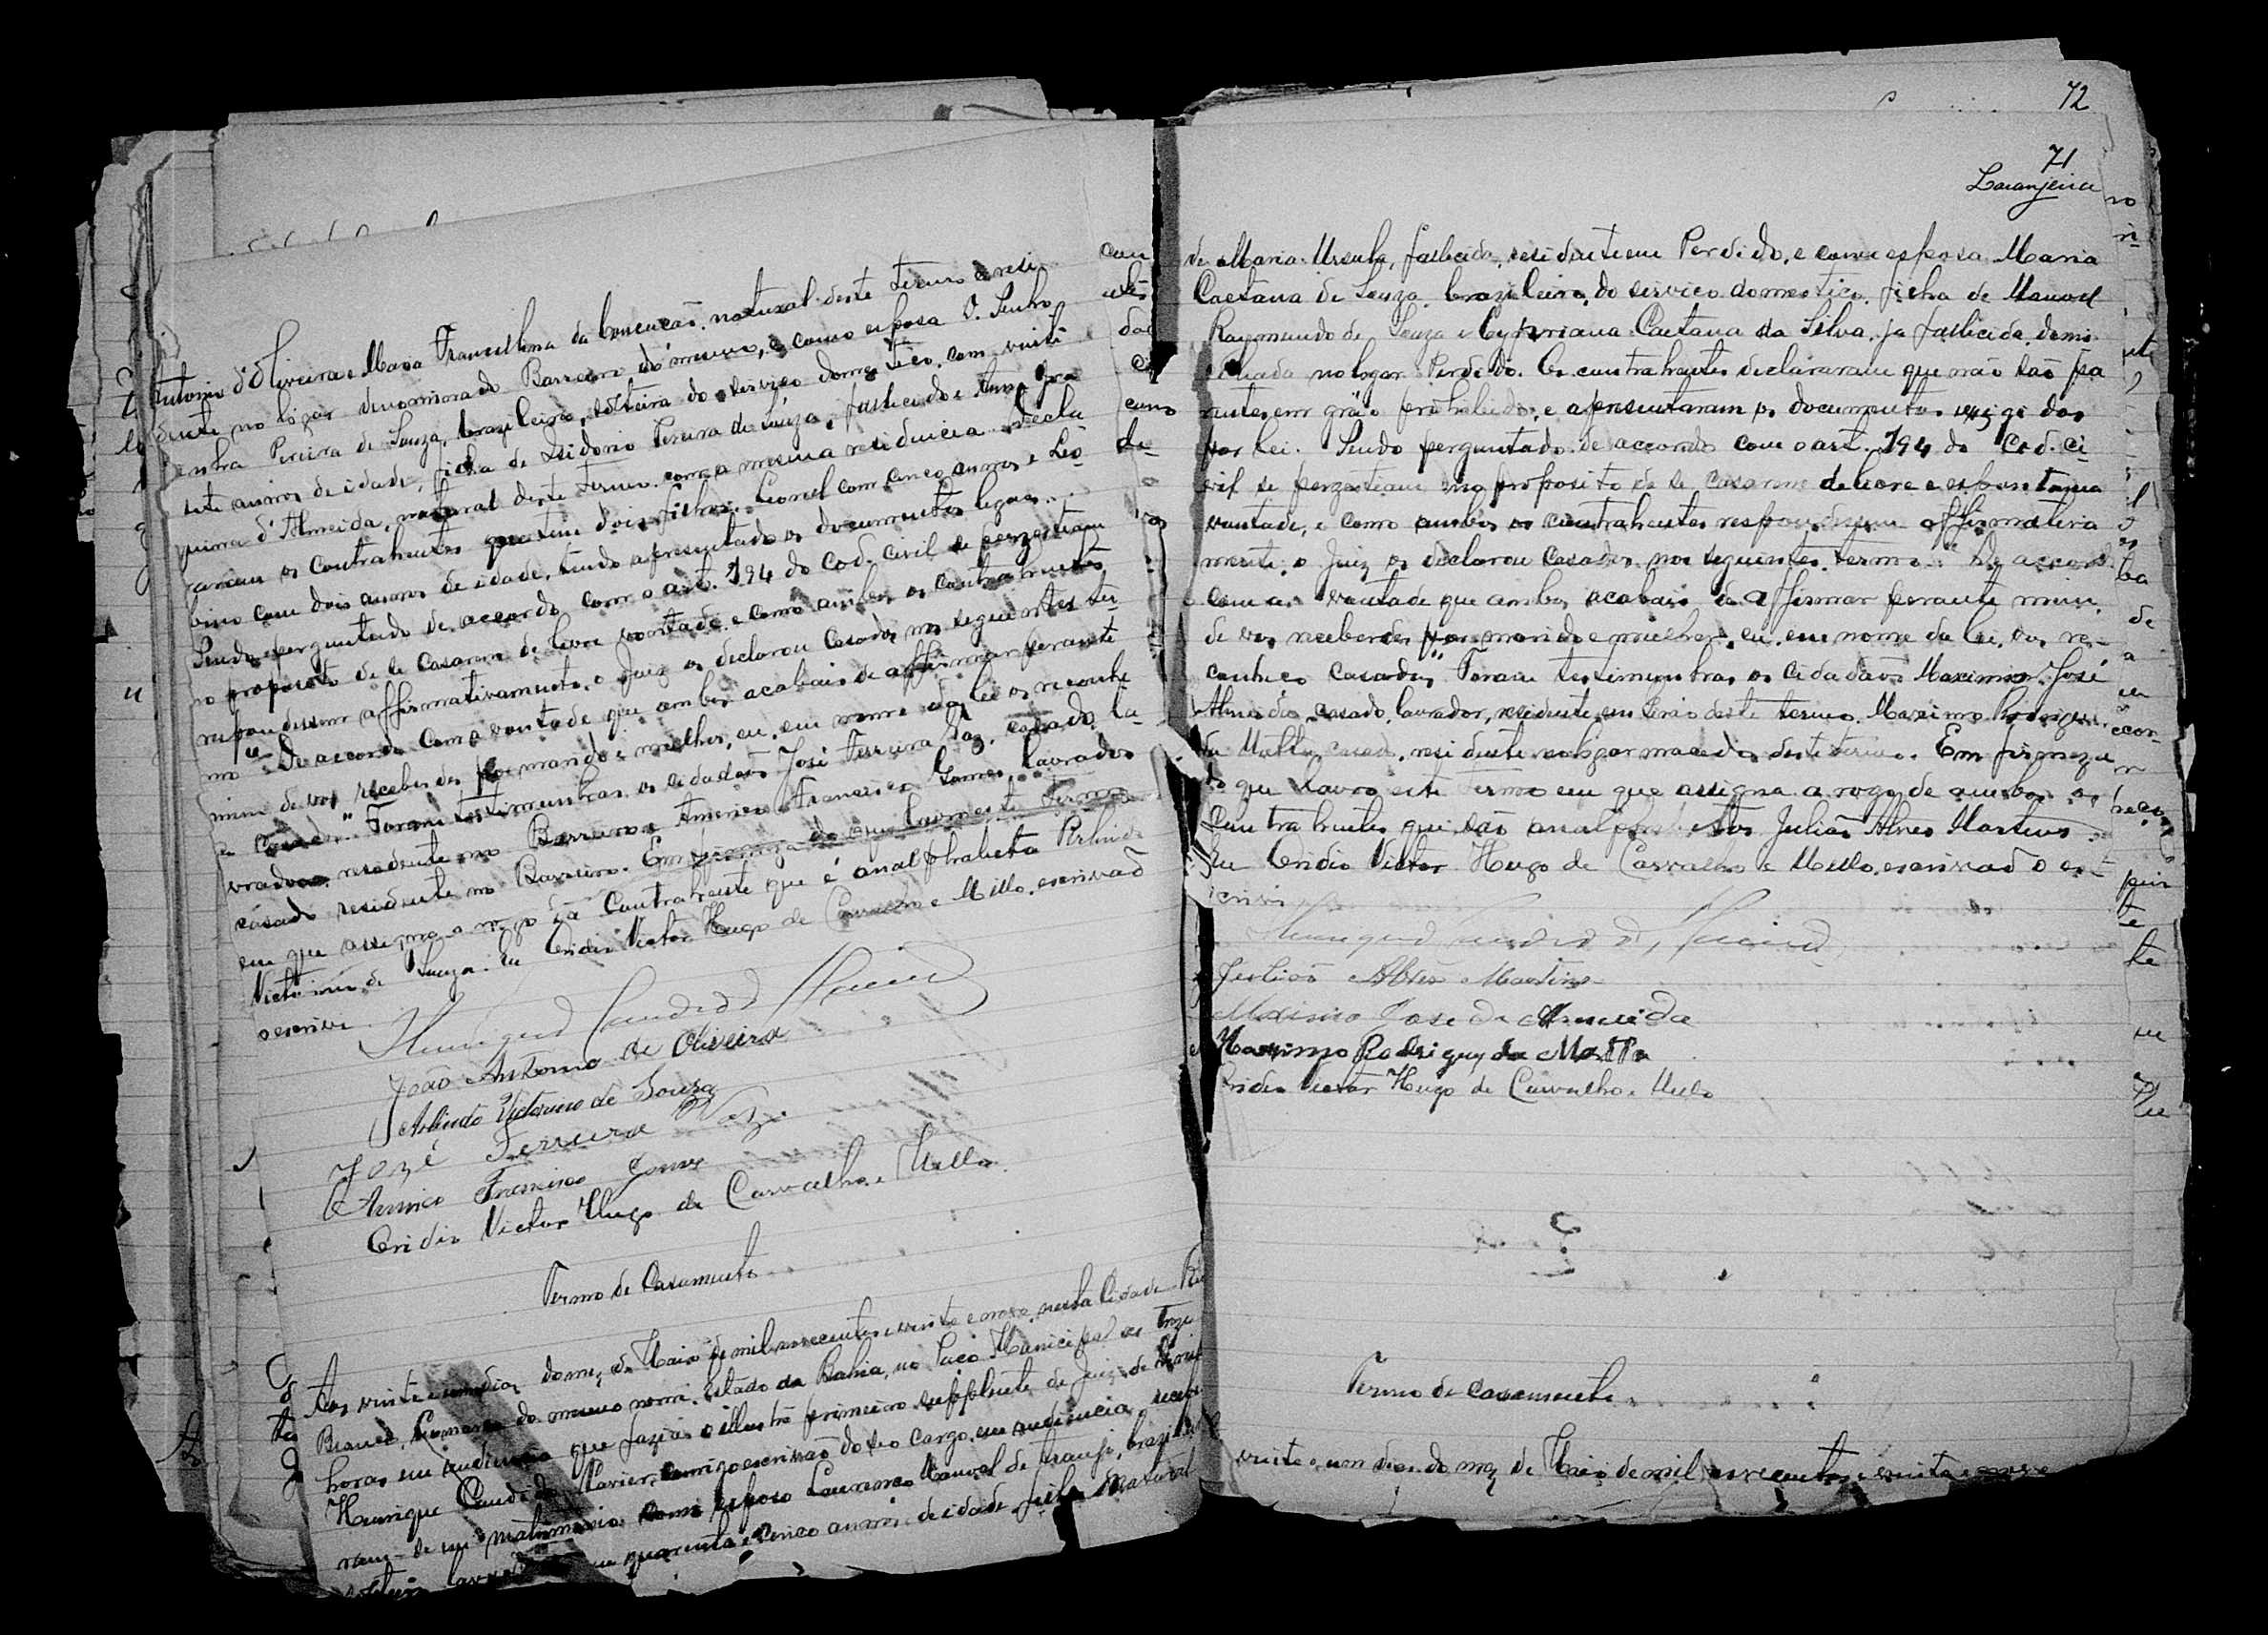 Antonio d'Oliveira e Maria Francellina da Conceição, natural deste termo e resi-
dente no lugar denominado Barreiro do mesmo, e como esposa D. Senho
rinha Pereira de Souza, brazileira, solteira do serviço domestico, com vinte
sete annos de idade, filha de Isidorio Pereira de Souza, fallecido e
d'Almeida, natural deste termo com a mesma residencia. Decla
raram os contrahentes que tem dois filhos: Leonel com cinco annos e Leo-
bino com dois annos de idade, tendo apresentado os documentos legaes.
Sendo perguntado de accordo com o art. 194 do Cod. Civil se persistiam
no proposito de se casarem de livre vontade e como ambos os contrahentes
respondessem affirmativamente, o Juiz os declarou casados nos seguintes ter-
mo "De accordo com a vontade que ambos acabais de affirmar perante
mim de vos receberdes por marido e mulher, eu, em nome da lei os reconhe
ço casados." Foram testimunhas os cidadãos José Ferreira Vaz, casado, la-
vrador, residente no Barreiro e Americo Francisco Gomes, lavrador
casado residente no Barreiro. Em firmeza do que lavro este Termo
em que assigna a rogo da contrahente que é analphabeta Arlindo
Victorino de Souza. Eu Victor Hugo de Carvalho e Mello, escrivão
o escrevi
João Antonio de Oliveira
Arlindo Victorino de Souza
José Ferreira Vaz
Americo Francisco Gomes
Victor Hugo de Carvalho e Mello
Termo de Casamento
Aos vinte e um dias do mez de Maio de mil novecentos e vinte e nove, nesta Cidade
Branco, Comarca do mesmo nome, Estado da Bahia, no Paço Municipal as treze
horas em audiencia que fazia o illustre primeiro supplente de Juiz de
Henrique Candido Xavier, comigo escrivão do seo cargo, em audiencia, recebe
ram-se em matrimonio como esposo Lourenço Manoel de Araujo, brazileiro
solteiro, lavrador quarenta e cinco annos de idade, filho natural
72
71
Laranjeira
de Maria Ursula, fallecida, residente em Perdido, e como esposa Maria
Caetana de Souza, brazileira, do serviço domestico, filha de Manoel
Raymundo de Souza e Cypriana Caetana da Silva, ja fallecida, domi-
ciliada no lugar Perdido. Os contrahentes declararam que não são pa
rentes em gráo prohibido, e apresentaram os documentos exigidos
por lei. Sendo perguntado de accordo com o art. 194 do Cod. Ci-
vil se persistiam no proposito de se casarem de livre e espontanea
vontade, e como ambos os contrahentes respondessem affirmativa
mente, o Juiz os declarou casados nos seguintes termo: "De accord
com a vontade que ambos acabais de affirmar perante mim,
de vos receberdes por marido e mulher, eu, em nome da lei, vos re-
conheço casados." Foram testimunhas os cidadãos Maximo José
Almeida, casado, lavrador, residente em deste termo. Maximo Rodrigues
da Matta, casado, residente no lugar macedo, deste termo. Em firmeza
do que lavro este Termo em que assigna a rogo de ambos os
Contrahentes que são analphabetos Julião Alves Martins.
Eu Victor Hugo de Carvalho e Mello, escrivão o es-
crevi
Julião Alves Martins
Maximo José de Almeida
Maximo Rodrigues da Matta
Victor Hugo de Carvalho e Mello
Termo de casamento
vinte e um dias do mez de Maio de mil novecentos e vinte e nove